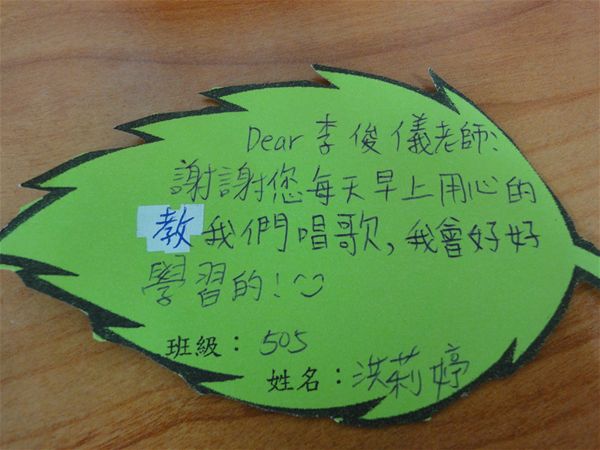 Dear 李俊儀老師:
謝謝您每天早上用心的
教我們唱歌,我會好好
學習的!
班級:505
姓名:洪莉婷